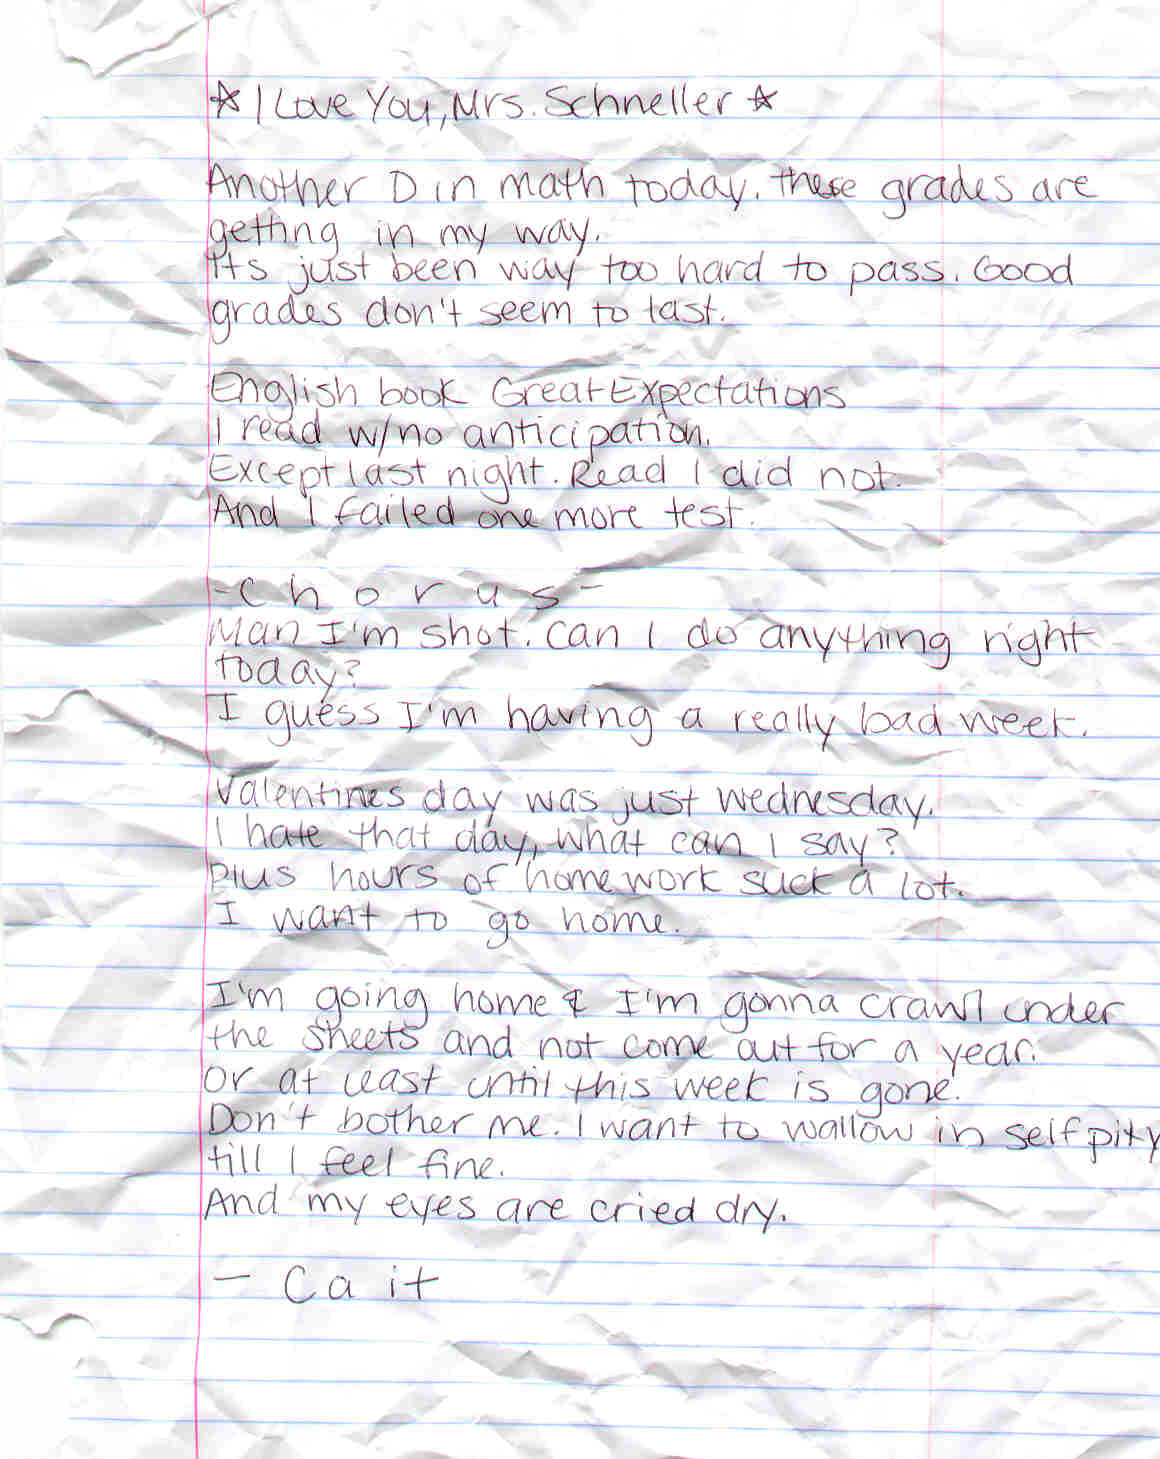 ☆ I Love You, Mrs. Schneller ☆
Another D in math today. these grades are
getting in my way.
Its just been way too hard to pass. Good
grades don't seem to last.
English book Great Expectations
I read w/no anticipation.
Except last night. Read I did not.
And I failed one more test.
-Chorus-
Man I'm shot. Can I do anything right
today?
I guess I'm having a really bad week.
Valentines day was just wednesday.
I hate that day, what can I say?
Plus hours of homework suck a lot.
I want to go home.
I'm going home & I'm gonna crawl under
the sheets and not come out for a year.
Or at least until this week is gone.
Don't bother me. I want to wallow in self pity
till I feel fine.
And my eyes are cried dry.
- Cait